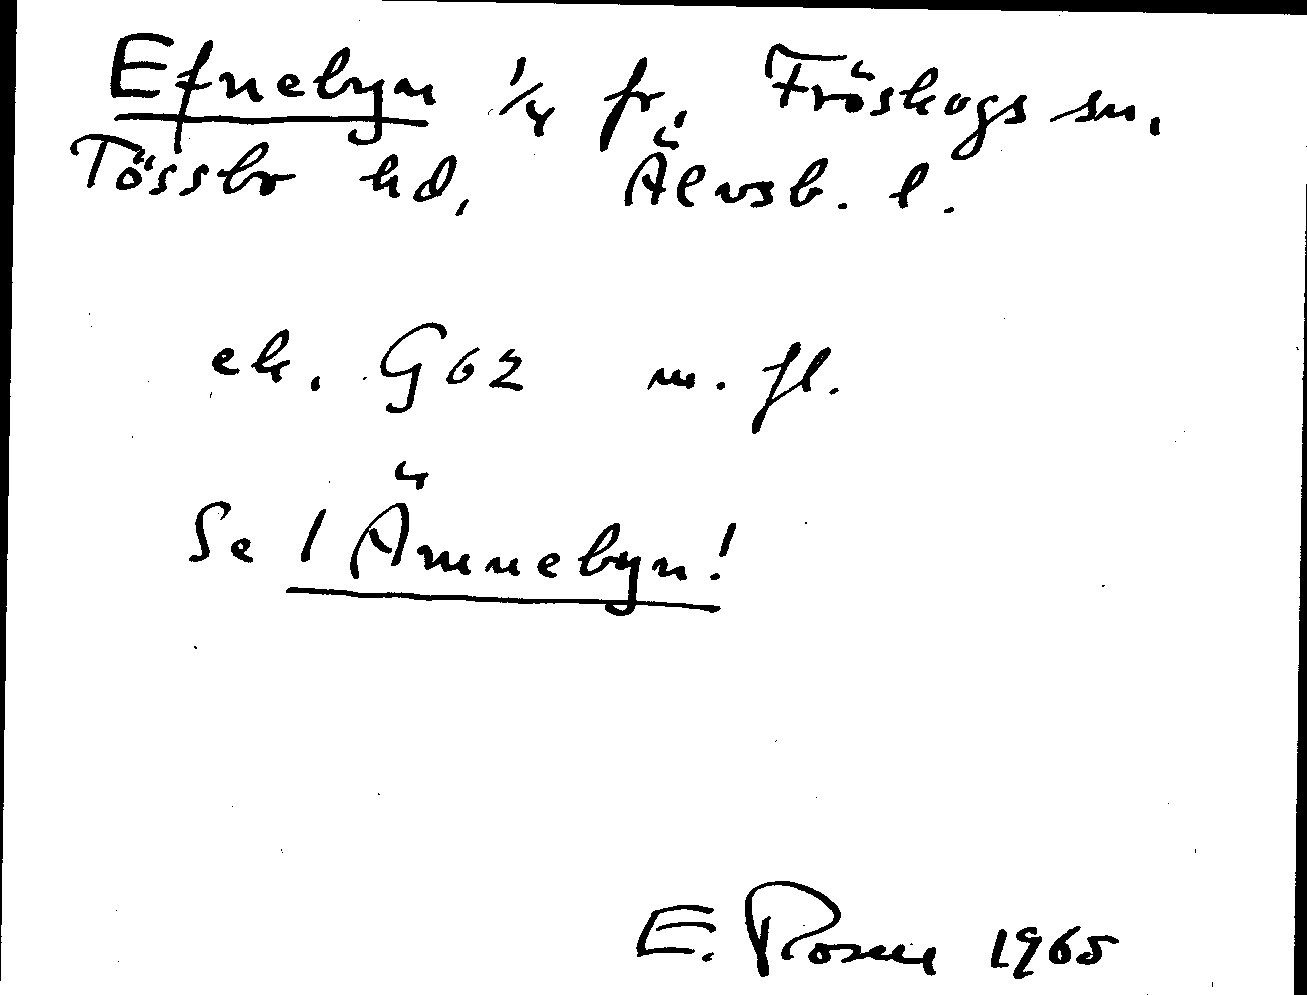 Efnebyn 1/4 fr. Fröskogs sn.
Tössbo hd, Älvsb. l.
ek. G62 m. fl.
Se 1 Ämnebyn!
E. Rosen 1965